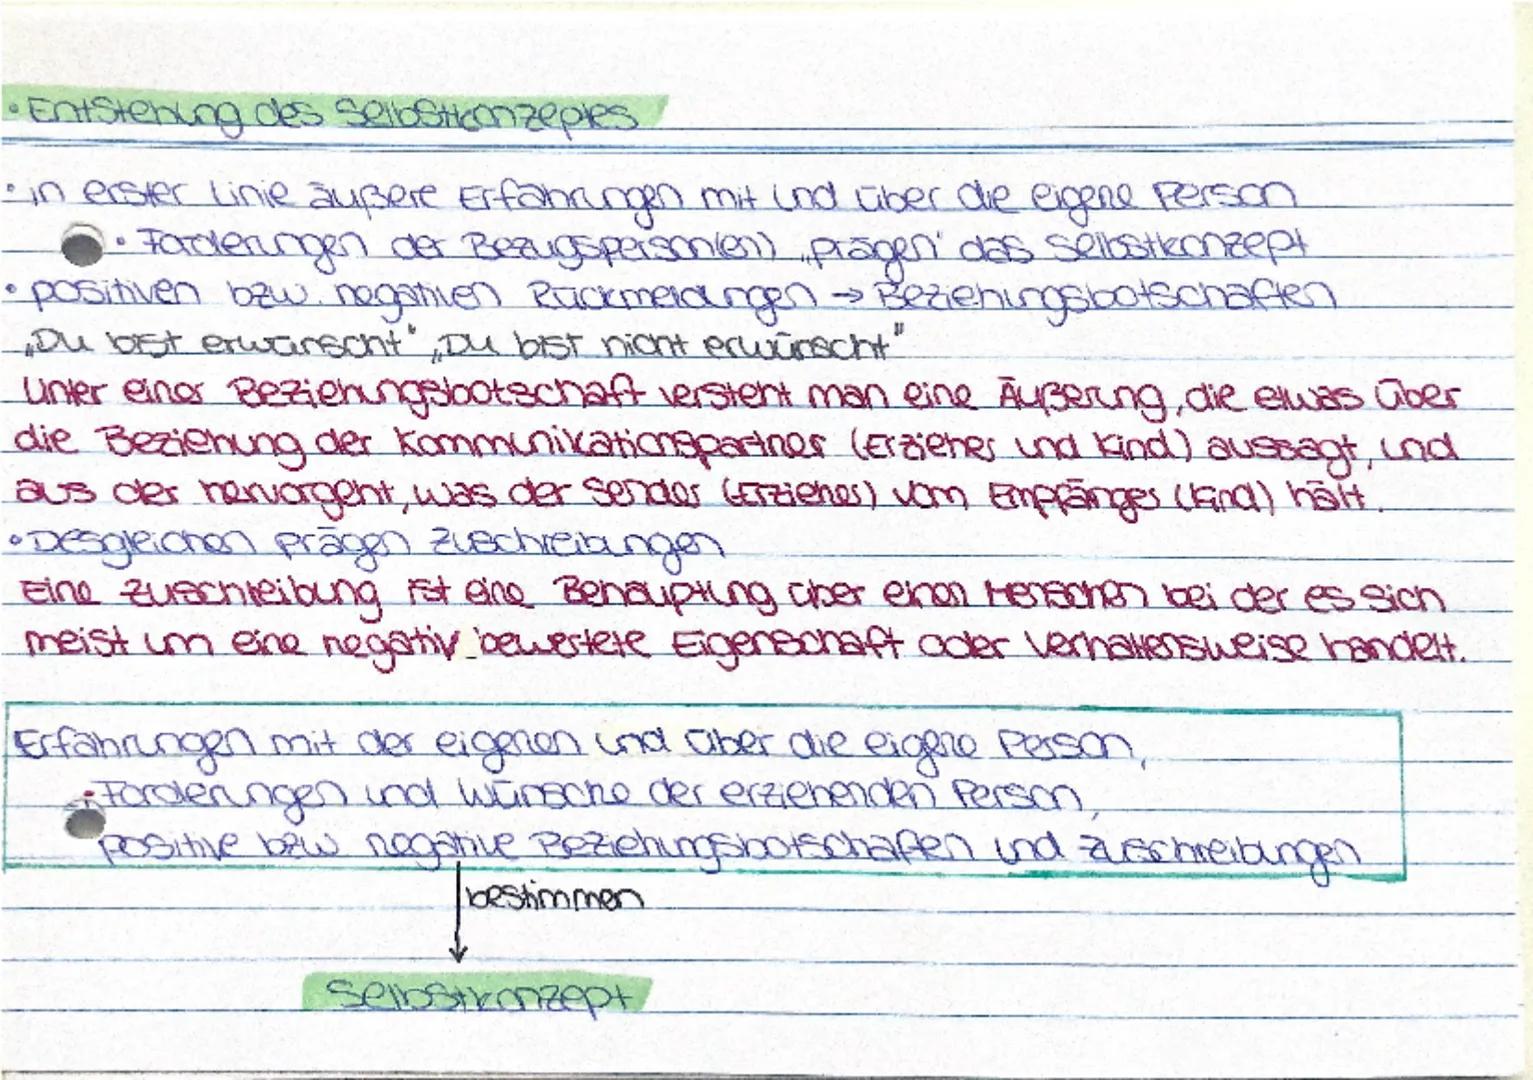 • Entstehung des Selbstkonzeptes
• in erster Linie äußere Erfahrungen mit und über die eigene Person
• Forderungen der Bezugsperson(en) „prägen" das Selbstkonzept
• positiven bzw. negativen Rückmeldungen → Beziehungsbotschaften
„Du bist erwünscht" „Du bist nicht erwünscht"
Unter einer Beziehungsbotschaft versteht man eine Äußerung, die etwas über
die Beziehung der Kommunikationspartner (Erzieher und Kind) aussagt, und
aus der hervorgeht, was der Sender (Erzieher) vom Empfänger (Kind) hält.
• Desgleichen prägen Zuschreibungen
Eine Zuschreibung ist eine Behauptung über einen Menschen bei der es sich
meist um eine negativ bewertete Eigenschaft oder Verhaltensweise handelt.
Erfahrungen mit der eigenen und über die eigene Person,
• Forderungen und Wünsche der erziehenden Person,
positive bzw. negative Beziehungsbotschaften und Zuschreibungen
bestimmen
Selbstkonzept